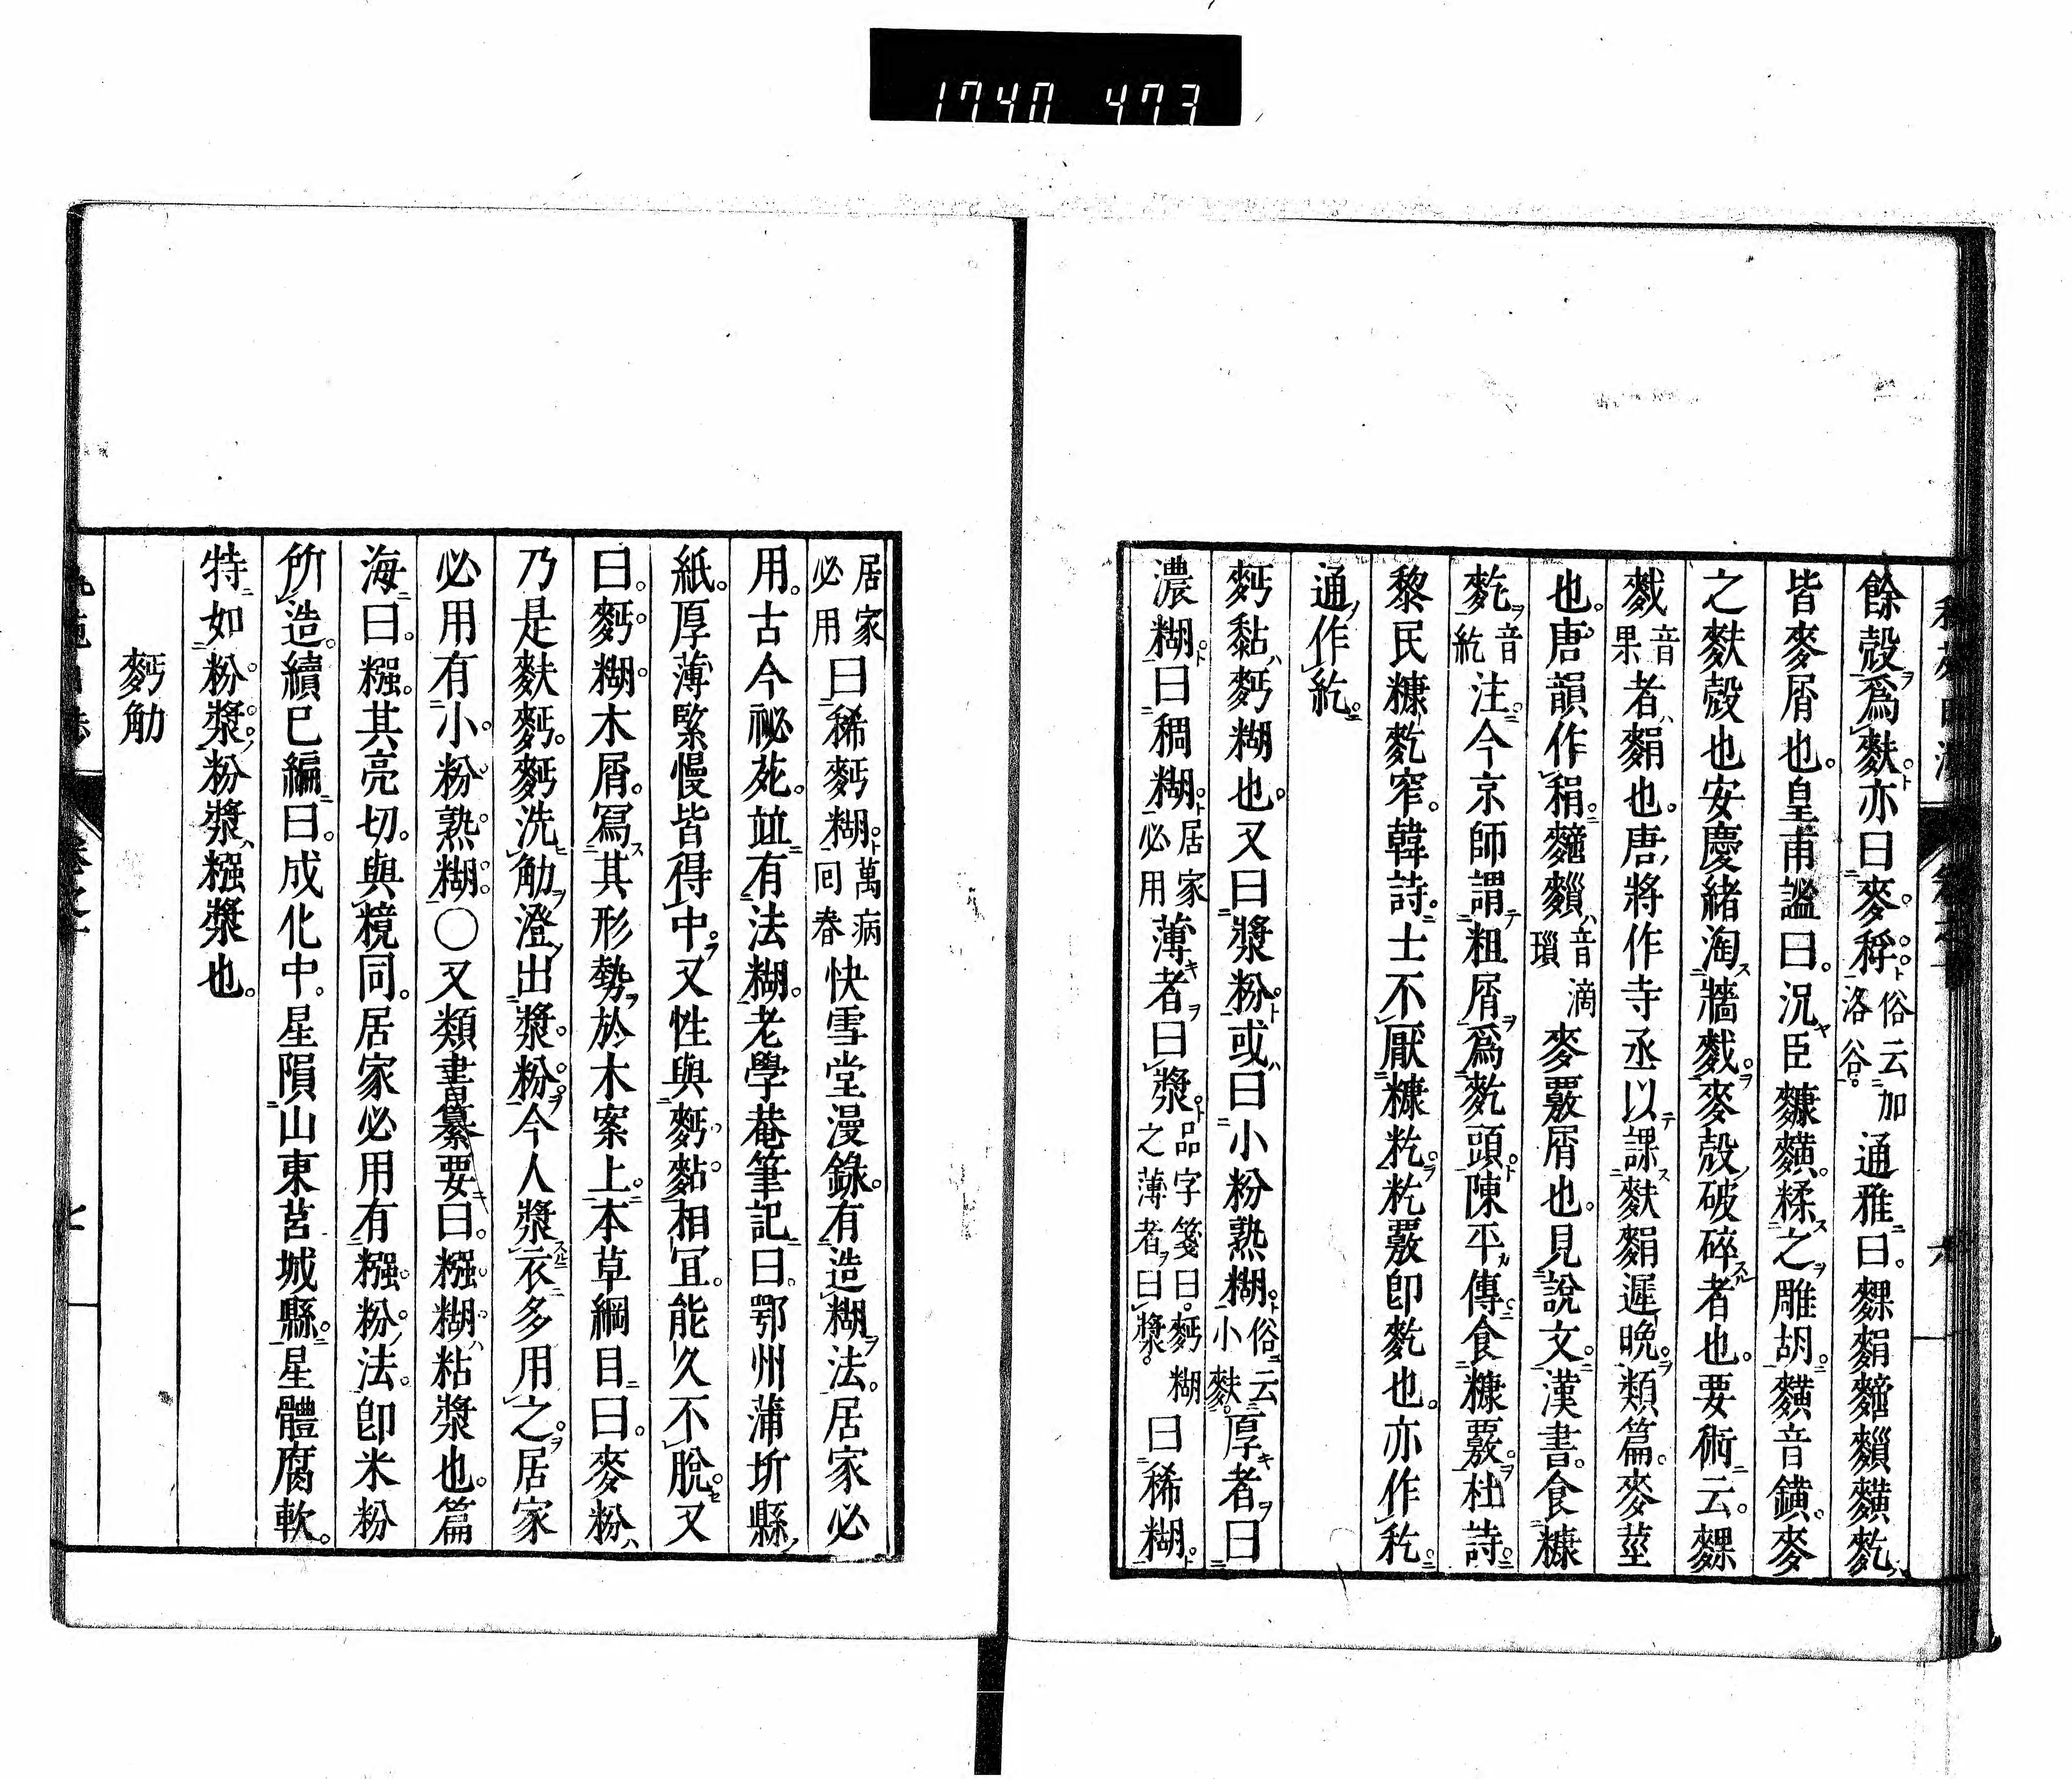 1740 473
餘殼爲麩亦曰麥稃俗云加洛谷通雅曰麶䴷䴿䵅䵃麧
皆麥屑也皇甫謐曰況臣糠䵃糅之雕胡䵃音鑛麥
之麩殼也安慶緒淘牆䴬麥殼破碎者也要術云麶
䴬音果者䴷也唐將作寺丞以課麩䴷遲晚類篇麥莖
也唐韻作稍䴿䵅音滴瓆麥覈屑也見說文漢書食糠
麧音紇注今京師謂粗屑爲麧頭陳平傳食糠覈杜詩
黎民糠麧窄韓詩士不厭糠籺籺覈卽麧也亦作籺
通作紇
麪黏麪糊也又曰漿粉或曰小粉熟糊俗云小麩厚者曰
濃糊曰稠糊居家必用薄者曰漿品字箋曰麪糊之薄者曰漿曰稀糊
居家必用曰稀麪糊萬病回春快雪堂漫錄有造糊法居家必
用古今祕苑竝有法糊老學菴筆記曰鄂州蒲圻縣
紙厚薄緊慢皆得中又性與麪黏相宜能久不脫又
曰麪糊木屑寫其形勢於木案上本草綱目曰麥粉
乃是麩麪麪洗觔澄出漿粉今人漿衣多用之居家
必用有小粉熟糊○又類書纂要曰糨糊粘漿也篇
海曰糨其亮切與糡同居家必用有糨粉法卽米粉
所造續巳編曰成化中星隕山東莒城縣星體腐軟
特如粉漿粉漿糨漿也
麪觔